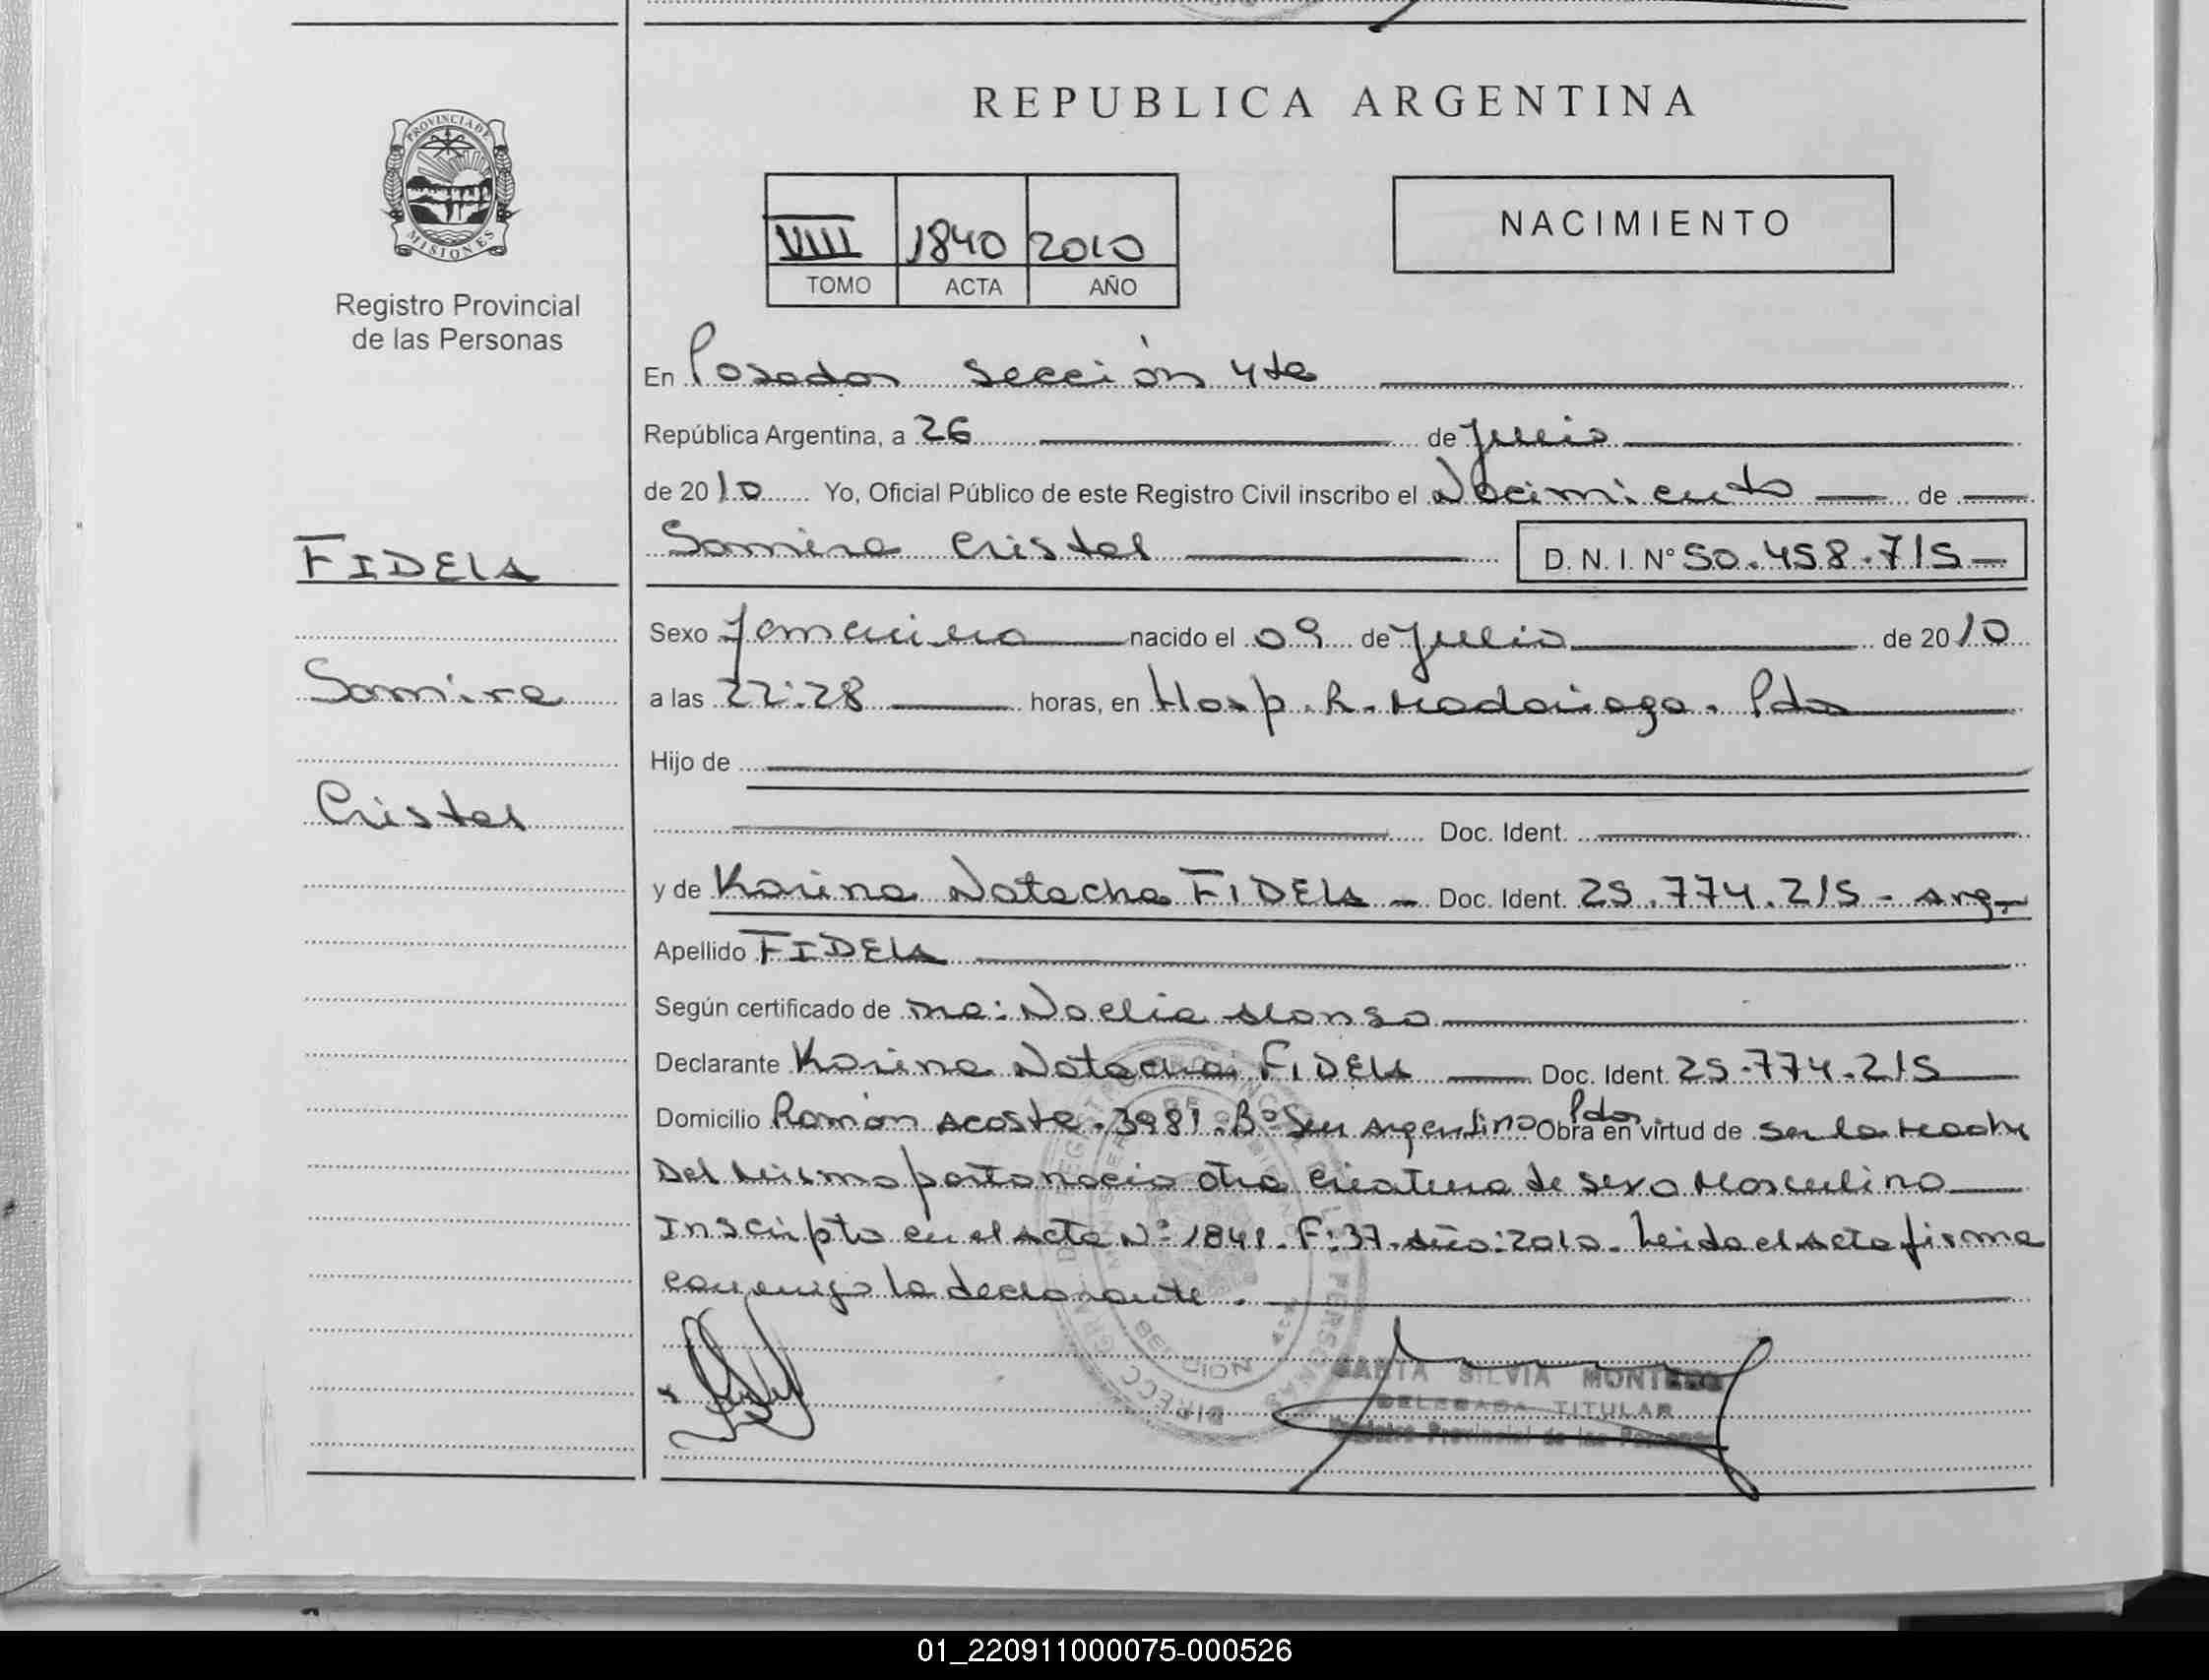 REPUBLICA ARGENTINA
PROVINCIA DE
MISIONES
Registro Provincial
de las Personas
VIII 1840 2010
TOMO ACTA AÑO
NACIMIENTO
En Posadas sección 4ta
República Argentina, a 26 de Julio
de 2010 Yo, Oficial Público de este Registro Civil inscribo el Nacimiento de
Samira Cristal D. N. I. N° 50.458.715
FIDELA
Samira
Cristal
Sexo Femenino nacido el 09 de Julio de 2010
a las 22:28 horas, en Hosp. R. Madariaga. Pdas
Hijo de
Doc. Ident.
y de Karina Natacha FIDELA Doc. Ident. 25.774.215 - Arg.
Apellido FIDELA
Según certificado de Noelia Alonso
Declarante Karina Natacha FIDELA Doc. Ident. 25.774.215
Domicilio Ramón Acosta. 3981. B° Sur Argentino Pdas Obra en virtud de ser la Madre
Del Mismo parto nacio otra Criatura de sexo Masculino
Inscripto en el Acta N° 1841. F: 37. Año: 2010. Leida el Acta firma
conmigo la declarante.
SILVIA MONTERO
DELEGADA TITULAR
Registro Provincial de las Personas
01_220911000075-000526